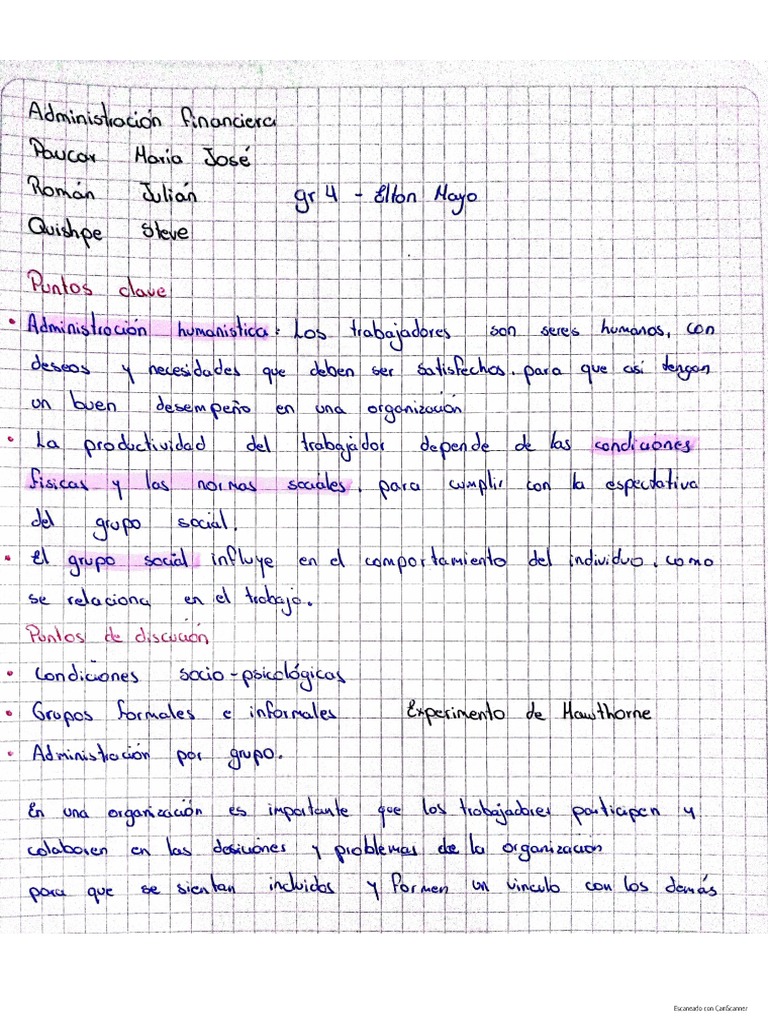 Administración financiera
Paucar María José
Román Julián gr 4 - Elton Mayo
Quishpe Steve
Puntos clave
• Administración humanistica: Los trabajadores son seres humanos, con
deseos y necesidades que deben ser satisfechos. para que asi tengan
un buen desempeño en una organización
• La productividad del trabajador depende de las condiciones
físicas y las normas sociales, para cumplir con la espectativa
del grupo social.
• El grupo social influye en el comportamiento del individuo, como
se relaciona en el trabajo.
Puntos de discución
• Condiciones socio-psicológicas
• Grupos formales e informales Experimento de Hawthorne
• Administración por grupo.
En una organización es importante que los trabajadores participen y
colaboren en las desiciones y problemas de la organización
para que se sientan incluidos y formen un vinculo con los demás
Escaneado con CamScanner